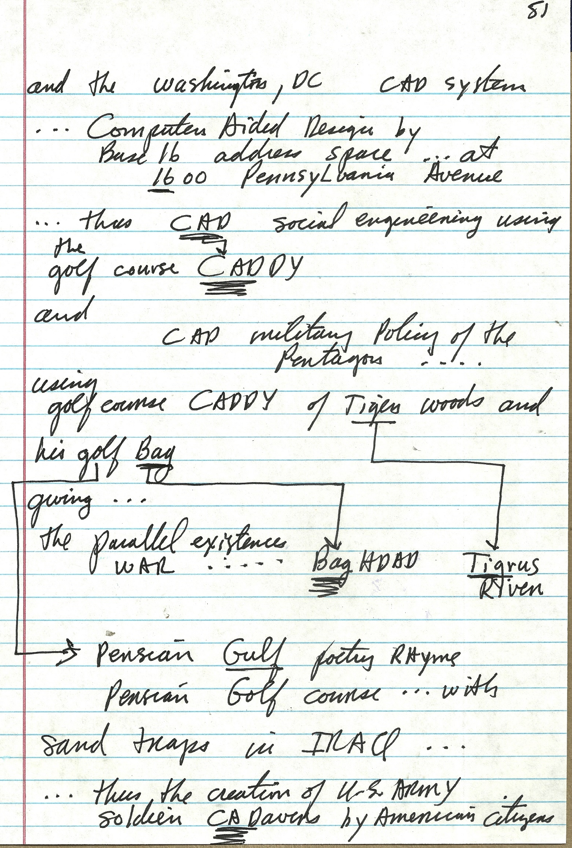 51
and the Washington, DC CAD system
... Computer Aided Design by
Base 16 address space ... at
1600 Pennsylvania Avenue
... thus CAD social engineering using
the
golf course CADDY
and
CAD military Policy of the
Pentagon .....
using
golf course CADDY of Tiger woods and
his golf Bag
giving ...
the parallel existences
WAR ..... BagHDAD Tigrus
RIver
Persian Gulf poetry RHyme
Persian Golf course ... with
sand traps in IRAQ ...
... thus the creation of U.S. ARMY
soldier CADavers by American citizens